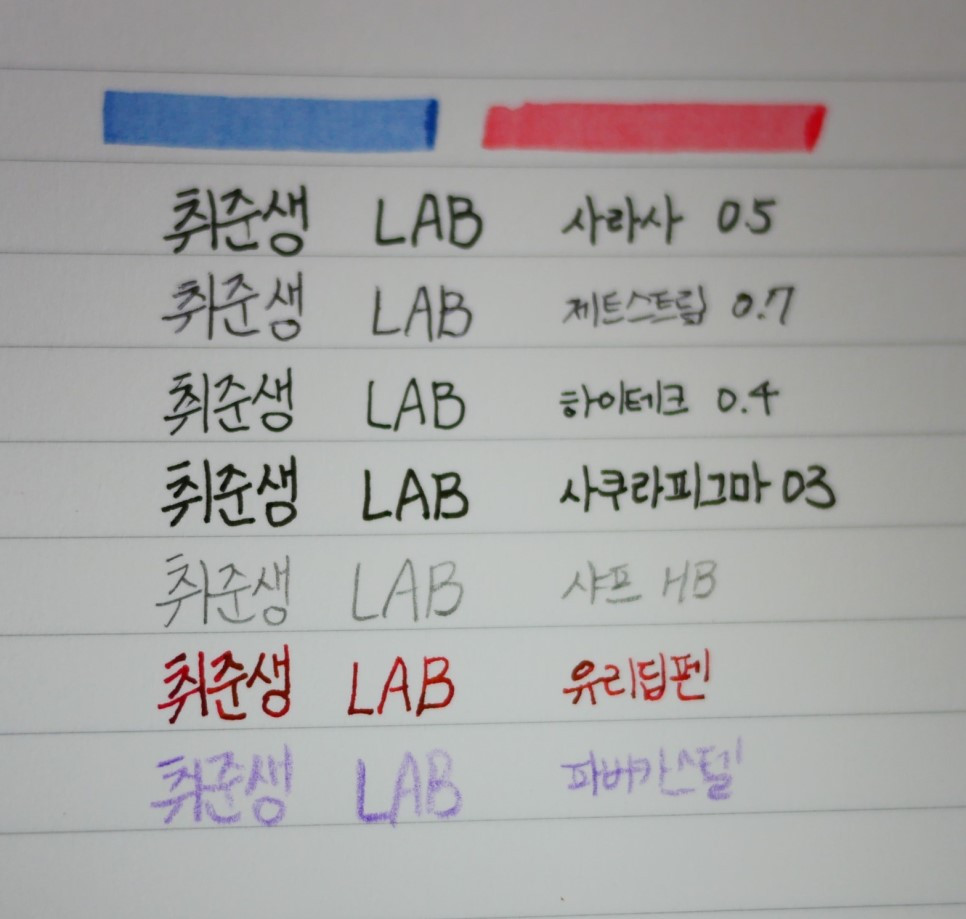 취준생 LAB 사라사 0.5
취준생 LAB 제트스트림 0.7
취준생 LAB 하이테크 0.4
취준생 LAB 사쿠라피그마 03
취준생 LAB 샤프 HB
취준생 LAB 유리딥펜
취준생 LAB 파버카스텔